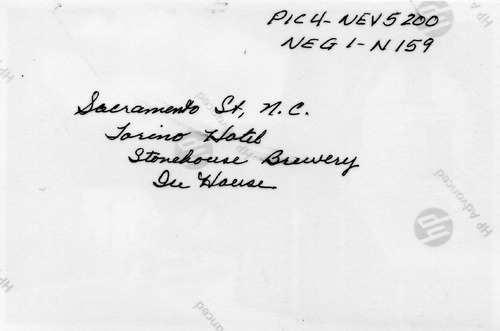 PIC4-NEV5200
NEG1-N159
Sacramento St, N.C.
Torino Hotel
Stonehouse Brewery
House
HP Advanced
hp
HP Adv
HP
vanced